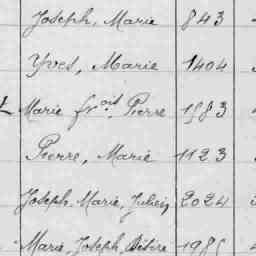 Joseph, Marie 843
Yves, Marie 1404
Marie frois Pierre 1583
Pierre, Marie 1123
Joseph, Marie, Julien 2024
Marie, Joseph, Désiré 1985